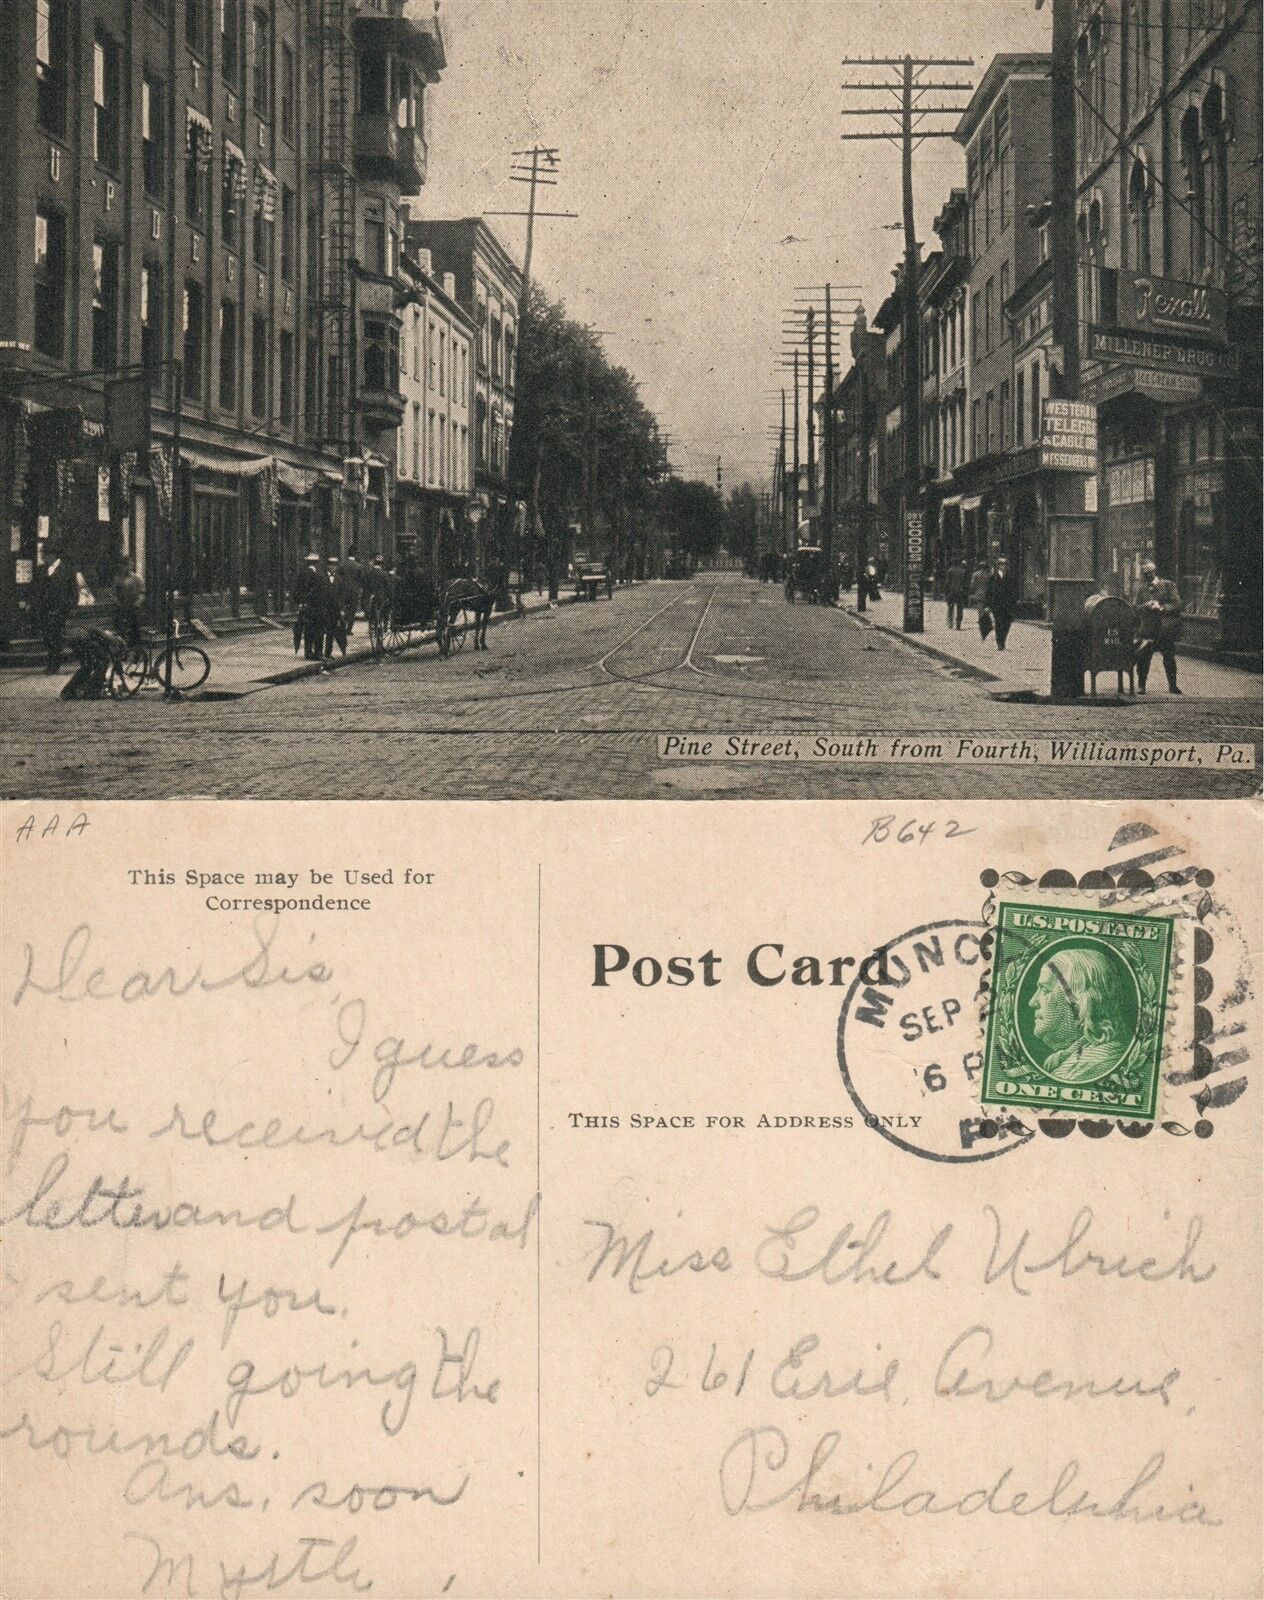 THE
UPDEGR
Rexall
MILLENER DRUG
ICE CREAM SODA
WESTERN
TELEGRA
& CABLE
MESSENGER
DRY
GOODS
U.S.
MAIL
Pine Street, South from Fourth, Williamsport, Pa.
AAA
B642
This Space may be Used for
Correspondence
Post Card
U.S. POSTAGE
ONE CENT
MUNCY
SEP 2
6 PM
PA
THIS SPACE FOR ADDRESS ONLY
Dear Sis,
I guess
you received the
letter and postal
sent you.
Still going the
rounds.
Ans. soon
Myrtle,
Miss Ethel Ulrich
261 Erie Avenue,
Philadelphia